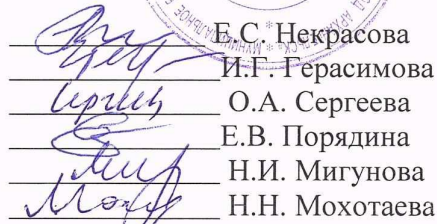 Е.С. Некрасова
И.Г. Герасимова
О.А. Сергеева
Е.В. Порядина
Н.И. Мигунова
Н.Н. Мохотаева